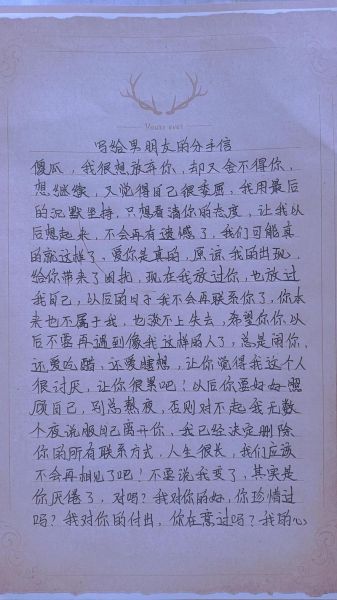 Yours ever
写给男朋友的分手信
傻瓜，我很想放弃你，却又舍不得你，
想继续，又觉得自己很委屈，我用最后
的沉默坚持，只想看清你的态度，让我以
后想起来，不会再有遗憾了，我们可能真
的就这样了，爱你是真的，原谅我的出现，
给你带来了困扰，现在我放过你，也放过
我自己，以后的日子我不会再联系你了，你本
来也不属于我，也谈不上失去，希望你你以
后不要再遇到像我这样的人了，总是闹你，
还爱吃醋，还爱瞎想，让你觉得我这个人
很讨厌，让你很累吧！以后你要好好照
顾自己，别总熬夜，否则对不起我无数
个夜说服自己离开你，我已经决定删除
你的所有联系方式，人生很长，我们应该
不会再相见了吧！不要说我变了，其实是
你厌倦了，对吗？我对你的好，你珍惜过
吗？我对你的付出，你在意过吗？我的心